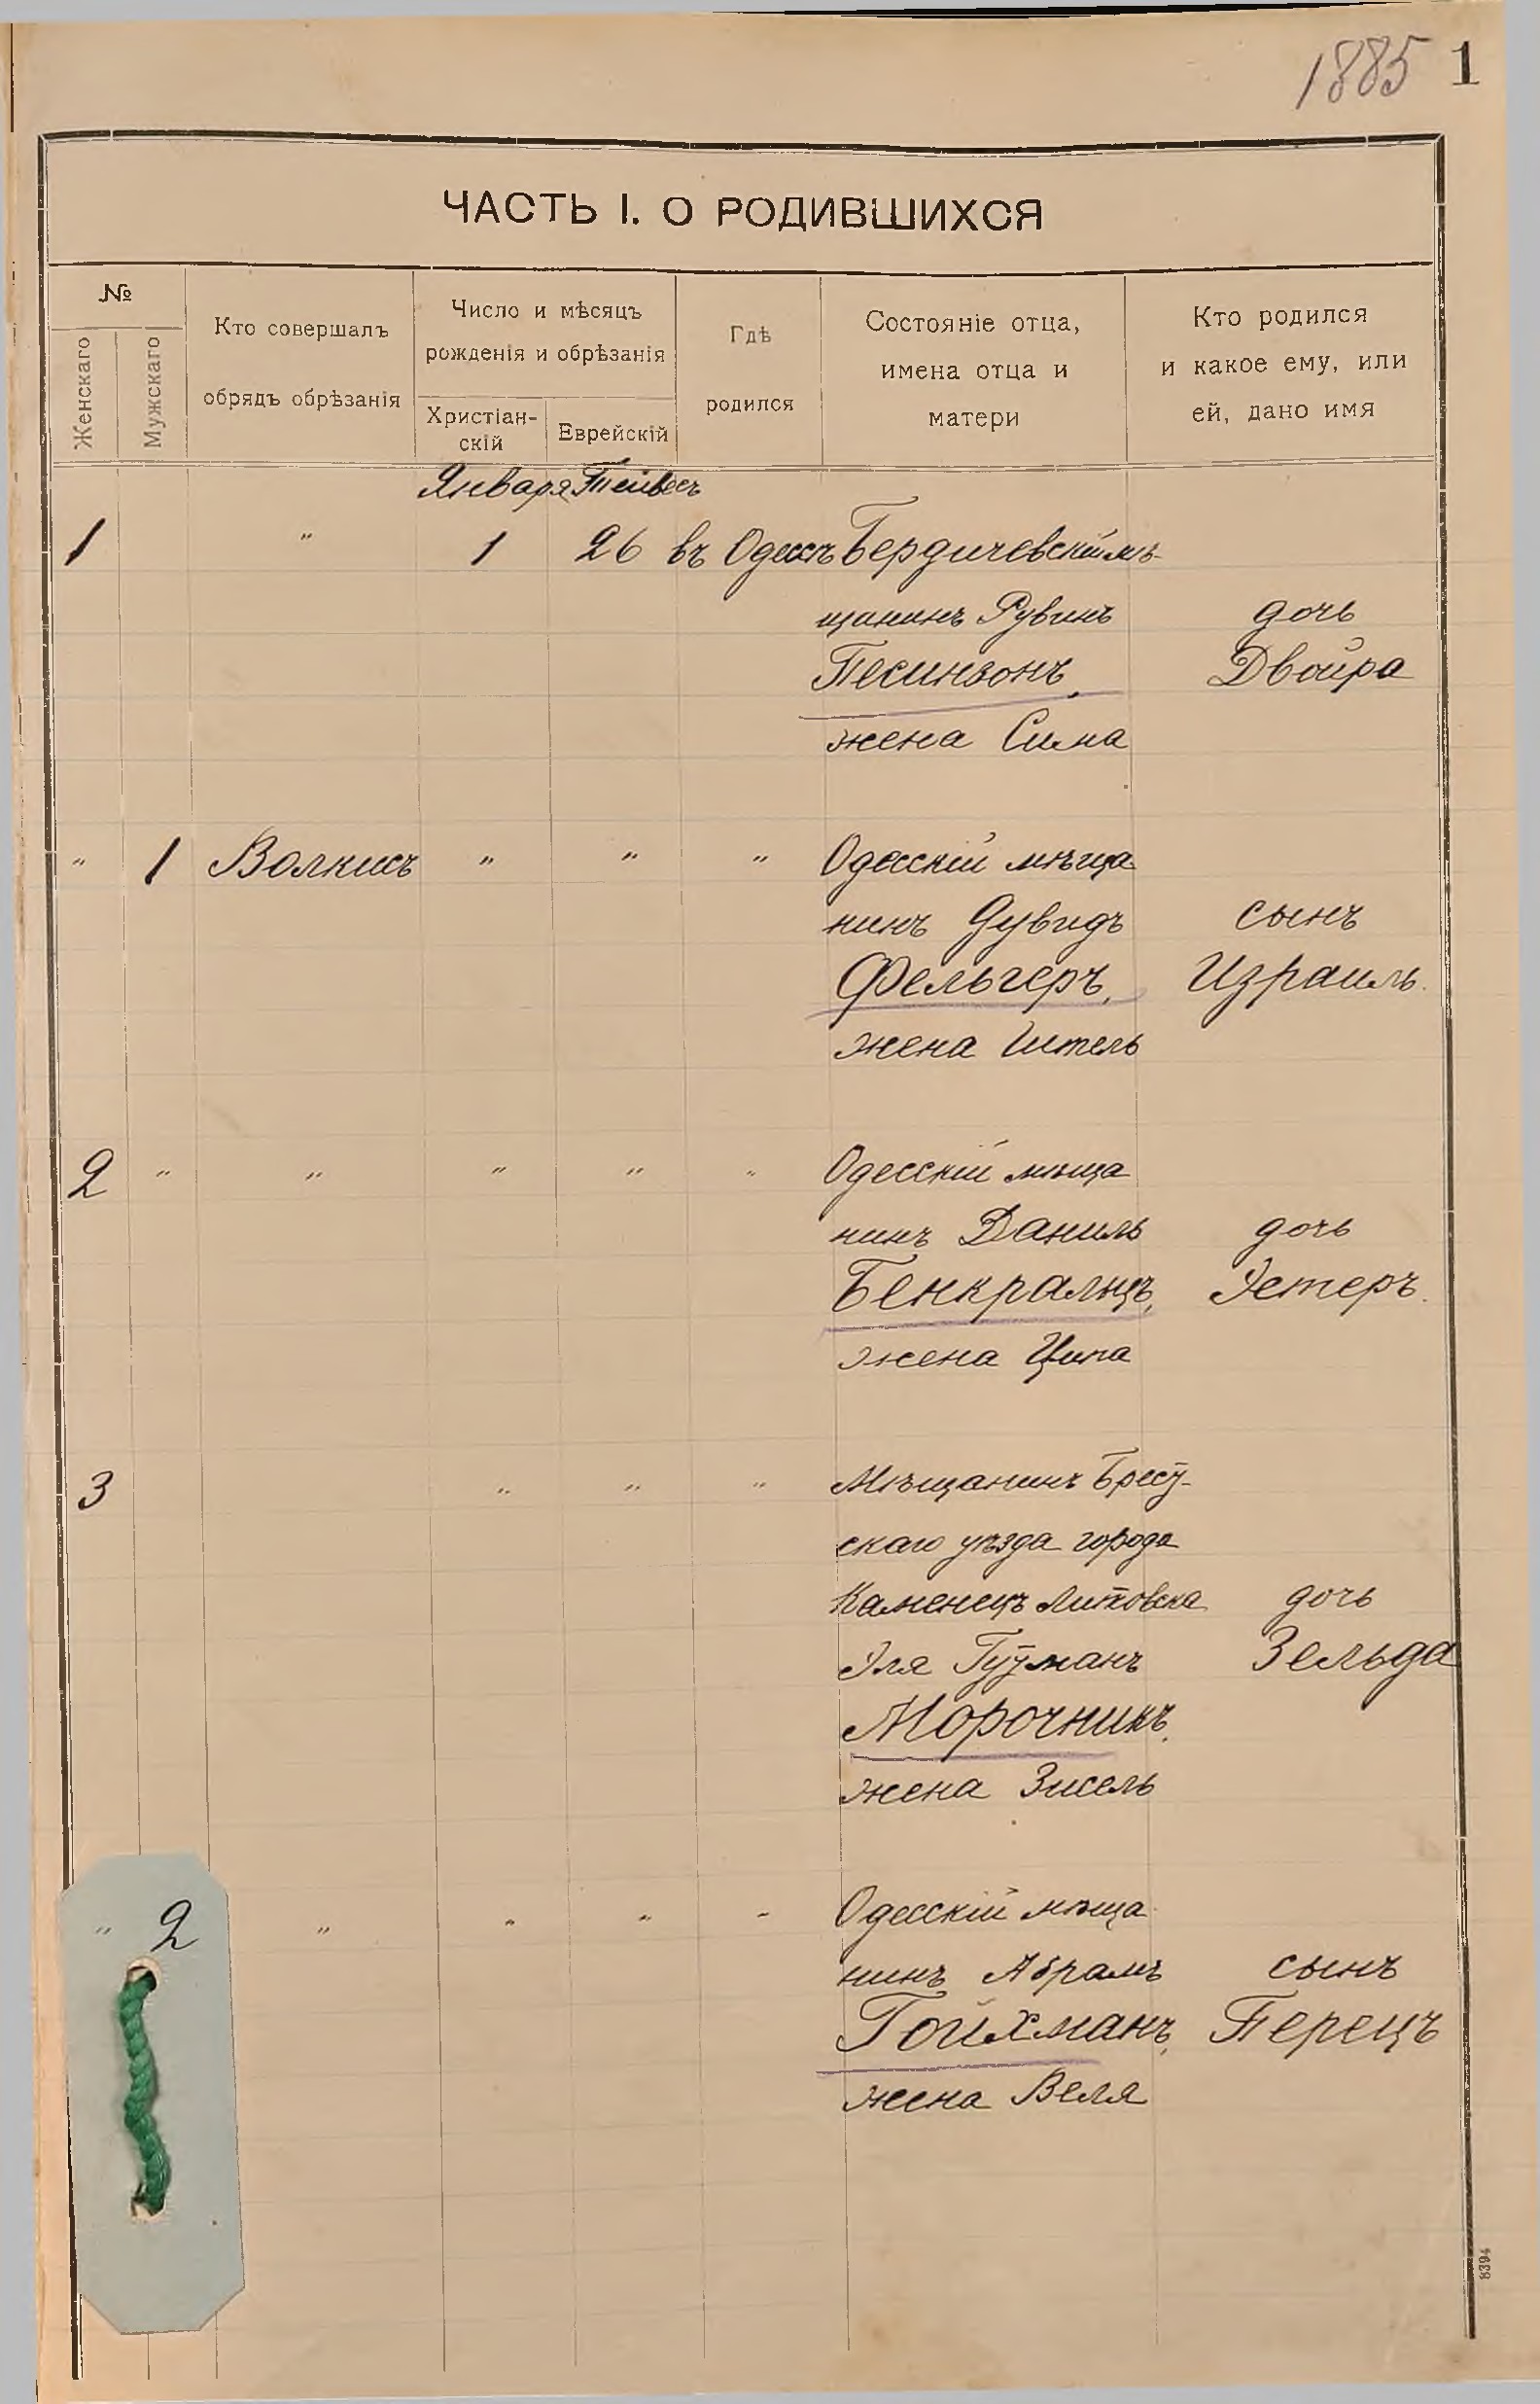 1885 1
ЧАСТЬ I. О РОДИВШИХСЯ
№
Женскаго
Мужскаго
Кто совершалъ
обрядъ обрѣзанія
Число и мѣсяцъ
рожденія и обрѣзанія
Христіан-
скій
Еврейскій
Гдѣ
родился
Состояніе отца,
имена отца и
матери
Кто родился
и какое ему, или
ей, дано имя
Января Тейвес
1 " 1 26 въ Одессѣ Бердичевскій мѣ-
щанинъ Рувинъ дочь
Песинзонъ, Двойра
жена Сима
" 1 Волкисъ " " " Одесскій мѣща
нинъ Дувидъ сынъ
Фельгеръ, Израиль.
жена Ител​ь
2 " " " " " Одесскій мѣща
нинъ Даниль дочь
Бенкральцъ, Эстеръ.
жена Ципа
3 " " " Мѣщанинъ Брест-
скаго уѣзда города
Каменецъ Литовска дочь
Эля Гутманъ Зельда
Морочникъ,
жена Зисель
" 2 " " " " Одесскій мѣща
нинъ Абрамъ сынъ
Гойхманъ, Перецъ
жена Веля
8394